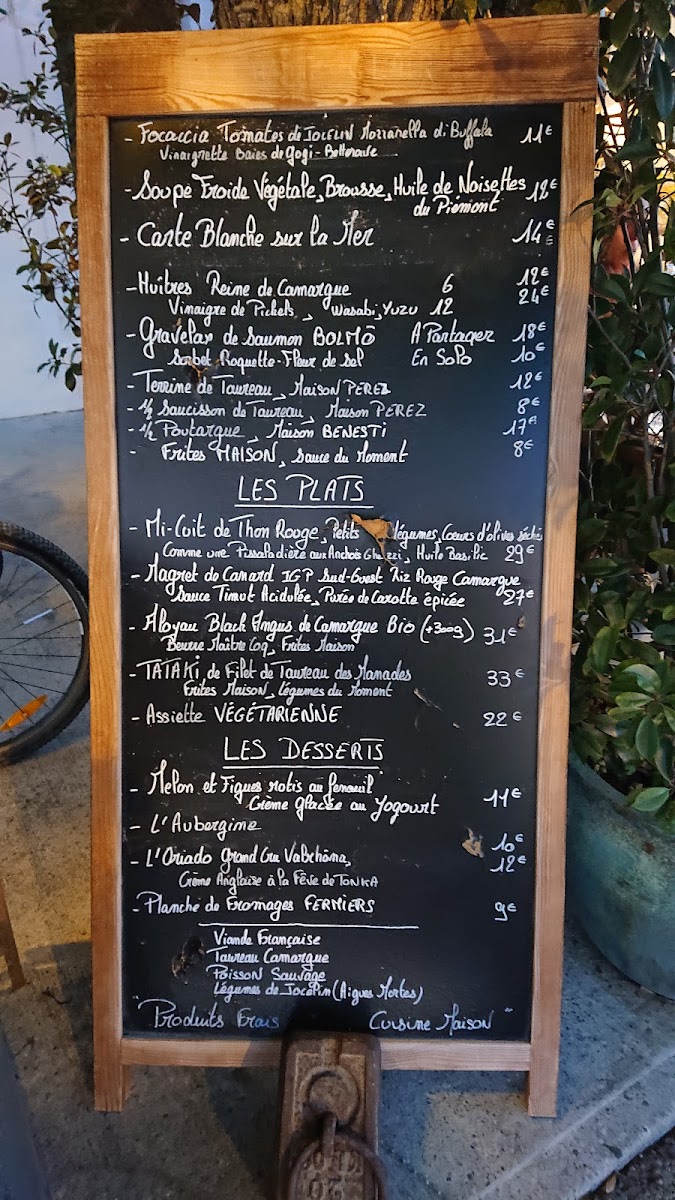 - Focaccia Tomates de JOCELIN Mozzarella di Buffala 11€
Vinaigrette Baies de Gogi - Betterave
- Soupe Froide Végétale, Brousse, Huile de Noisettes 12€
du Piémont
- Carte Blanche sur la Mer 14€
- Huîtres Reine de Camargue 6 12€
Vinaigre de Pickels, Wasabi, Yuzu 12 24€
- Gravelax de Saumon BOLMÖ A Partager 18€
Sorbet Roquette - Fleur de sel En Solo 10€
- Terrine de Taureau, Maison PEREZ 12€
- 1/2 Saucisson de Taureau, Maison PEREZ 8€
- 1/2 Poutargue, Maison BENESTI 17€
- Frites MAISON, Sauce du Moment 8€
LES PLATS
- Mi-Cuit de Thon Rouge, Petits légumes, Coeurs d'olives séchés
Comme une Pissaladière aux Anchois, Huile Basilic 29€
- Magret de Canard IGP Sud-Ouest Riz Rouge Camargue
Sauce Timut Acidulée, Purée de Carotte épicée 27€
- Aloyau Black Angus de Camargue Bio (+300g) 31€
Beurre Maître Coq, Frites Maison
- TATAKI de Filet de Taureau des Manades 33€
Frites Maison, Légumes du Moment
- Assiette VÉGÉTARIENNE 22€
LES DESSERTS
- Melon et Figues rotis au Fenouil
Crème glacée au Yogourt 11€
- L'Aubergine 10€
- L'Oriado Grand Cru Valrhôna, 12€
Crème Anglaise à la Fève de TONKA
- Planche de Fromages FERMIERS 9€
Viande Française
Taureau Camargue
Poisson Sauvage
Légumes de Jocelin (Aigues Mortes)
"Produits Frais Cuisine Maison"